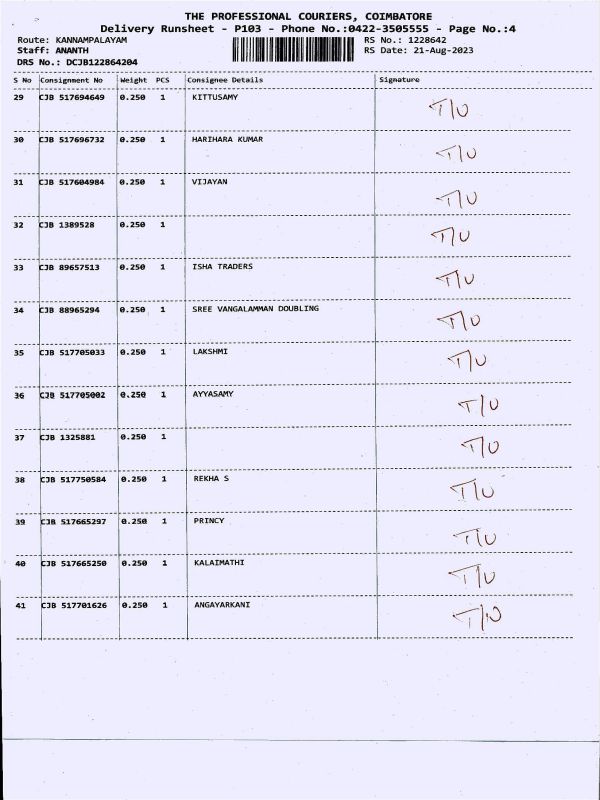 THE PROFESSIONAL COURIERS, COIMBATORE
Delivery Runsheet - P103 - Phone No.:0422-3505555 - Page No.:4
Route: KANNAMPALAYAM RS No.: 1228642
Staff: ANANTH RS Date: 21-Aug-2023
DRS No.: DCJB122864204
S No Consignment No Weight PCS Consignee Details Signature
29 CJB 517694649 0.250 1 KITTUSAMY T/U
30 CJB 517696732 0.250 1 HARIHARA KUMAR T/U
31 CJB 517604984 0.250 1 VIJAYAN T/U
32 CJB 1389528 0.250 1 T/U
33 CJB 89657513 0.250 1 ISHA TRADERS T/U
34 CJB 88965294 0.250 1 SREE VANGALAMMAN DOUBLING T/U
35 CJB 517705033 0.250 1 LAKSHMI T/U
36 CJB 517705002 0.250 1 AYYASAMY T/U
37 CJB 1325881 0.250 1 T/U
38 CJB 517750584 0.250 1 REKHA S T/U
39 CJB 517665297 0.250 1 PRINCY T/U
40 CJB 517665250 0.250 1 KALAIMATHI T/U
41 CJB 517701626 0.250 1 ANGAYARKANI T/U